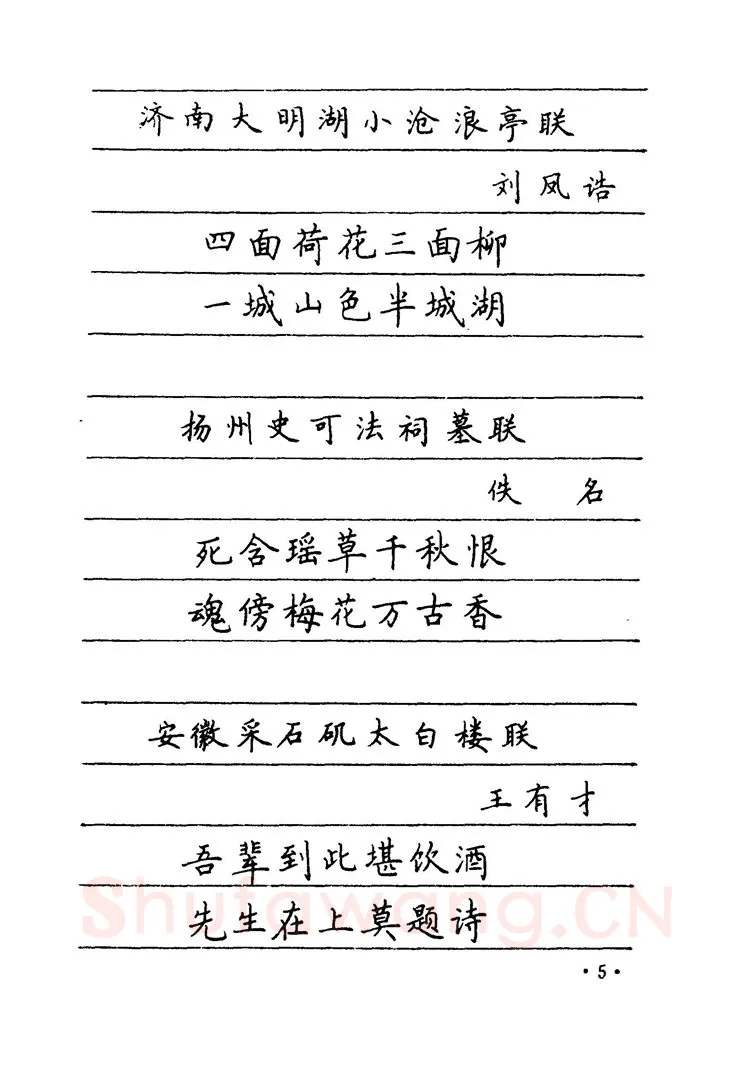 济南大明湖小沧浪亭联
刘凤诰
四面荷花三面柳
一城山色半城湖
扬州史可法祠墓联
佚 名
死含瑶草千秋恨
魂傍梅花万古香
安徽采石矶太白楼联
王有才
吾辈到此堪饮酒
先生在上莫题诗
Shufawang.CN
·5·